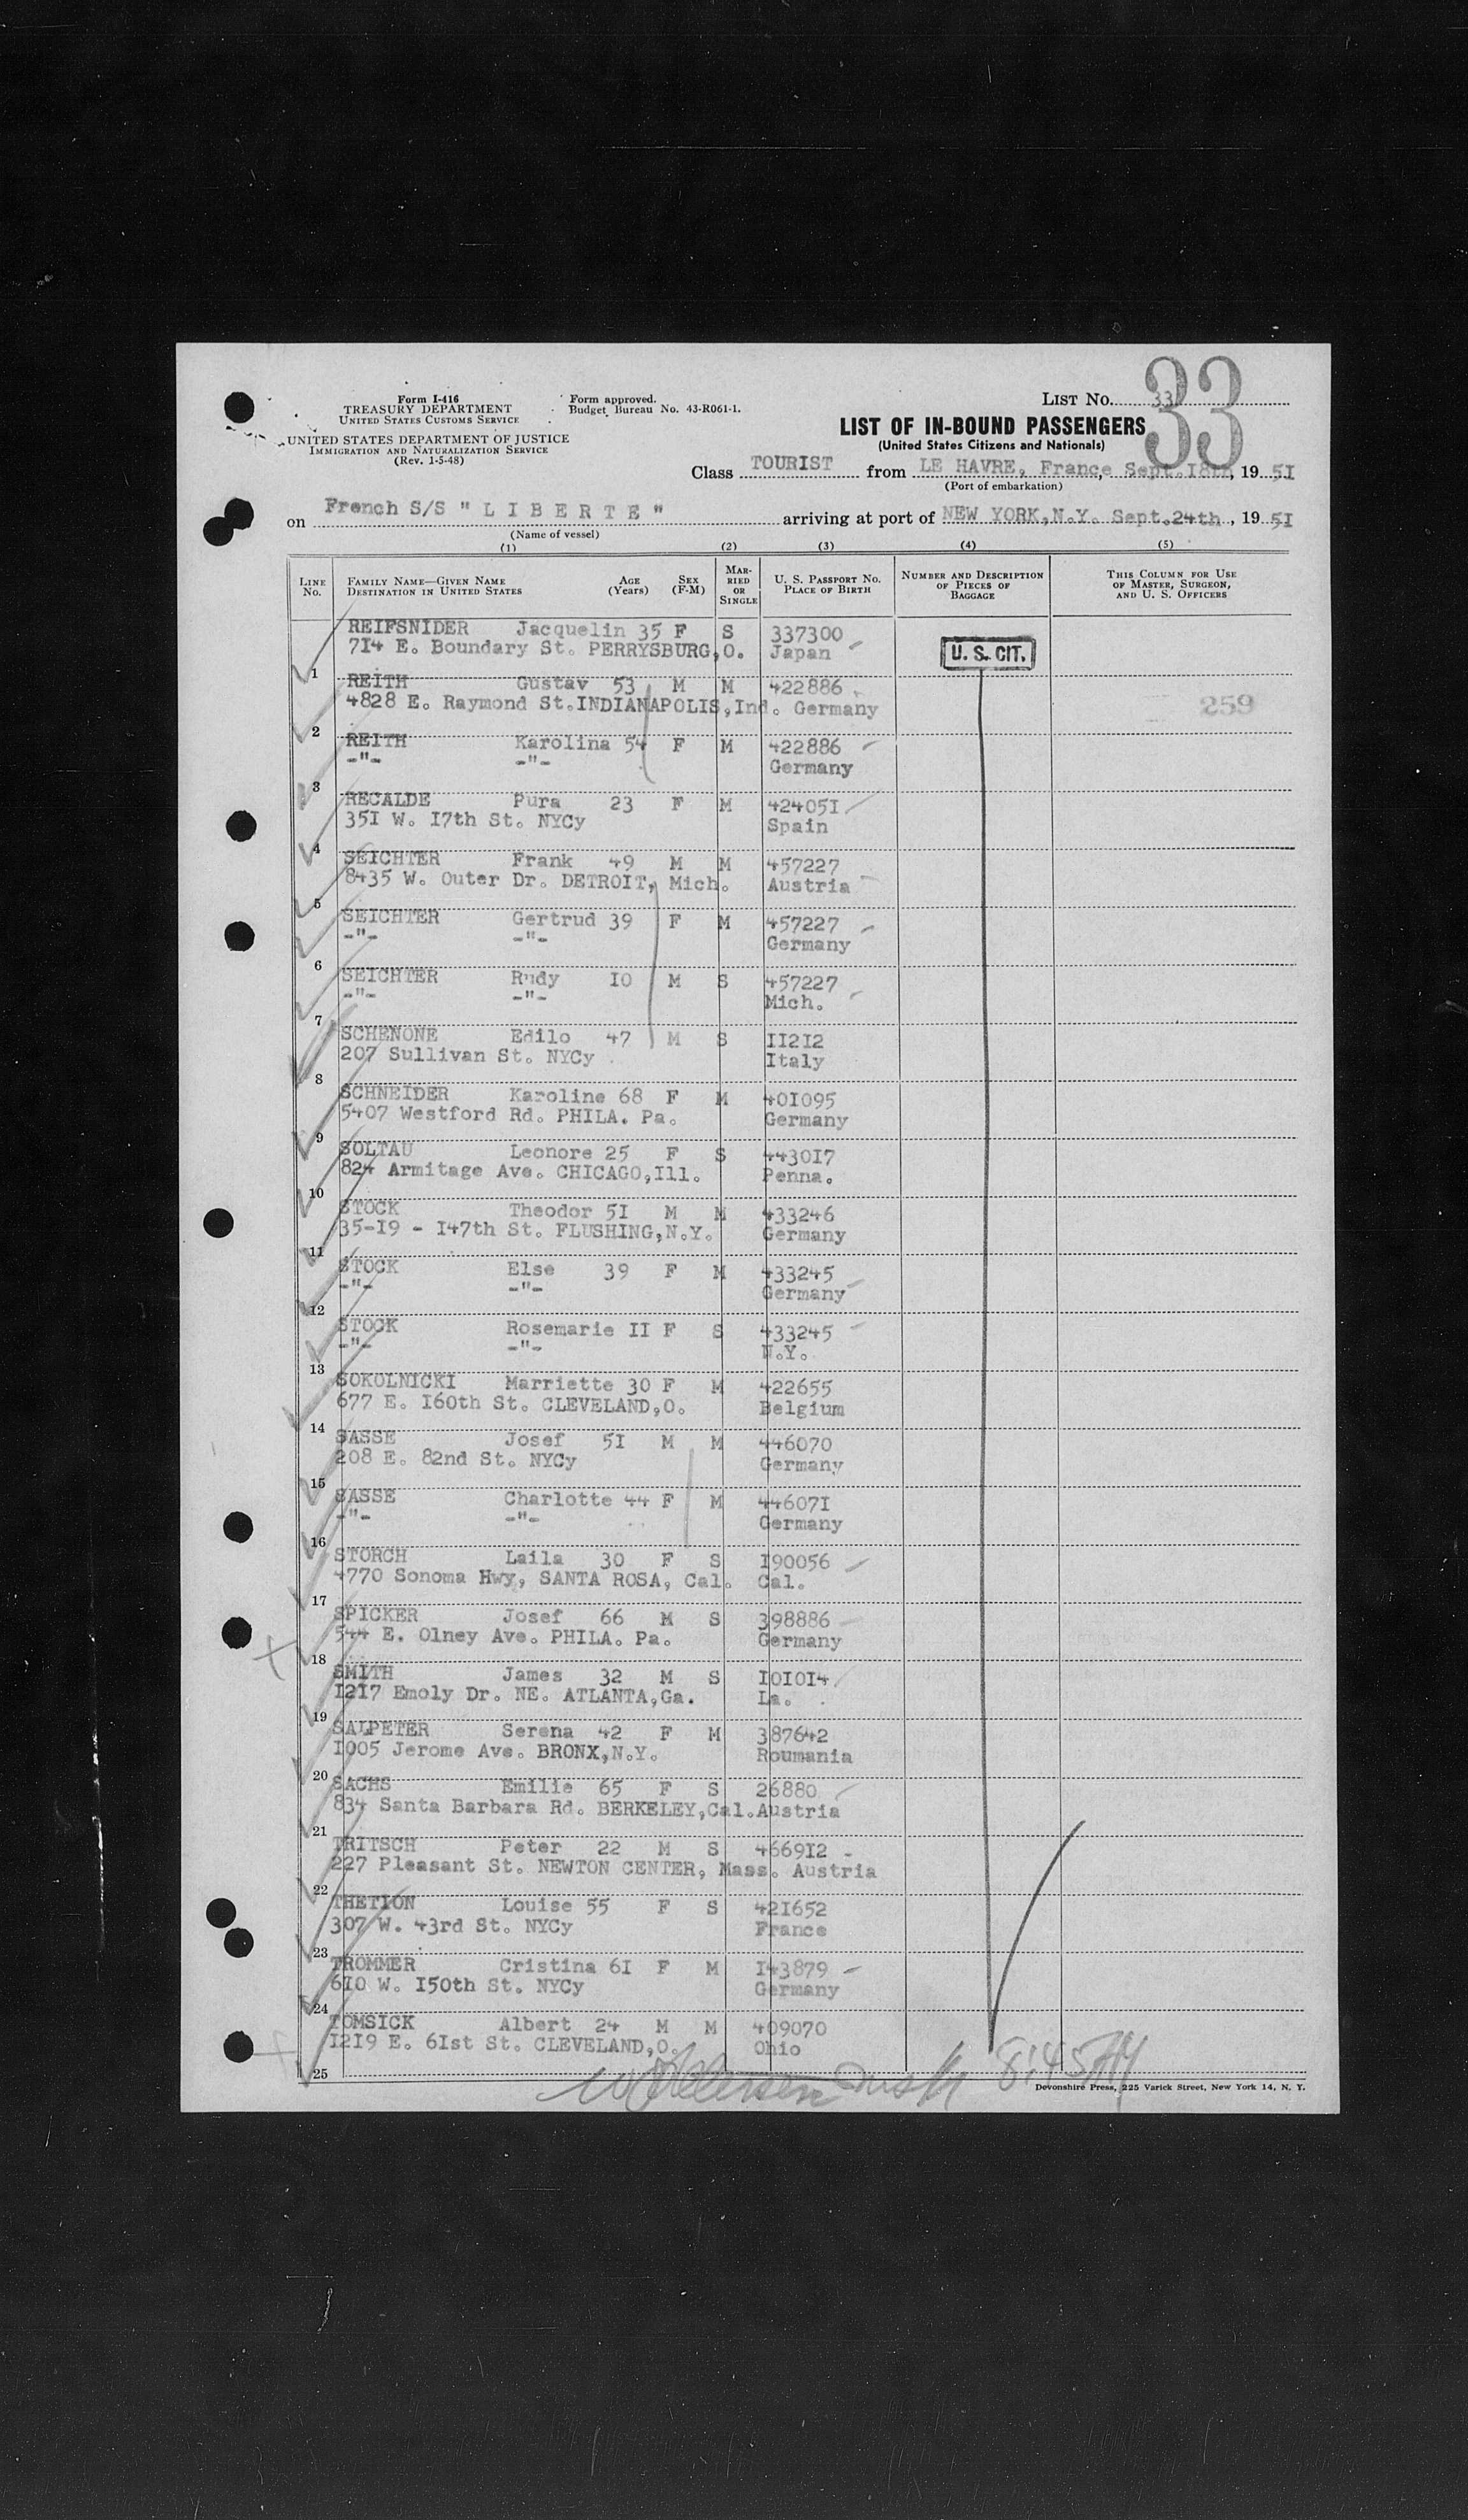 Form I-416
TREASURY DEPARTMENT
UNITED STATES CUSTOMS SERVICE
UNITED STATES DEPARTMENT OF JUSTICE
IMMIGRATION AND NATURALIZATION SERVICE
(Rev. 1-5-48)
Form approved.
Budget Bureau No. 43-R061-1.
LIST NO. 33
33
LIST OF IN-BOUND PASSENGERS
(United States Citizens and Nationals)
Class TOURIST from LE HAVRE, France, Sept.18th, 19 51
(Port of embarkation)
on French S/S " L I B E R T E " arriving at port of NEW YORK,N.Y. Sept.24th, 19 51
(Name of vessel)
(1) (2) (3) (4) (5)
LINE NO.
FAMILY NAME—GIVEN NAME
DESTINATION IN UNITED STATES
AGE (Years)
SEX (F-M)
MARRIED OR SINGLE
U. S. PASSPORT NO.
PLACE OF BIRTH
NUMBER AND DESCRIPTION OF PIECES OF BAGGAGE
THIS COLUMN FOR USE OF MASTER, SURGEON, AND U. S. OFFICERS
REIFSNIDER Jacquelin 35 F S 337300
714 E. Boundary St. PERRYSBURG,O. Japan
U. S. CIT.
1
REITH Gustav 53 M M 422886
4828 E. Raymond St.INDIANAPOLIS,Ind. Germany
259
2
REITH Karolina 54 F M 422886
-"- -"- Germany
3
RECALDE Pura 23 F M 424051
351 W. 17th St. NYCy Spain
4
SEICHTER Frank 49 M M 457227
8435 W. Outer Dr. DETROIT, Mich. Austria
5
SEICHTER Gertrud 39 F M 457227
-"- -"- Germany
6
SEICHTER Rudy 10 M S 457227
-"- -"- Mich.
7
SCHENONE Edilo 47 M S 11212
207 Sullivan St. NYCy Italy
8
SCHNEIDER Karoline 68 F M 401095
5407 Westford Rd. PHILA. Pa. Germany
9
SOLTAU Leonore 25 F S 443017
824 Armitage Ave. CHICAGO,Ill. Penna.
10
STOCK Theodor 51 M M 433246
35-19 - 147th St. FLUSHING,N.Y. Germany
11
STOCK Else 39 F M 433245
-"- -"- Germany
12
STOCK Rosemarie 11 F S 433245
-"- -"- N.Y.
13
SOKOLNICKI Marriette 30 F M 422655
677 E. 160th St. CLEVELAND,O. Belgium
14
SASSE Josef 51 M M 446070
208 E. 82nd St. NYCy Germany
15
SASSE Charlotte 44 F M 446071
-"- -"- Germany
16
STORCH Laila 30 F S 190056
4770 Sonoma Hwy, SANTA ROSA, Cal. Cal.
17
SPICKER Josef 66 M S 398886
544 E. Olney Ave. PHILA. Pa. Germany
18
SMITH James 32 M S 101014
1217 Emoly Dr. NE. ATLANTA,Ga. La.
19
SALPETER Serena 42 F M 387642
1005 Jerome Ave. BRONX,N.Y. Roumania
20
SACHS Emilie 65 F S 26880
834 Santa Barbara Rd. BERKELEY,Cal.Austria
21
TRITSCH Peter 22 M S 466912
227 Pleasant St. NEWTON CENTER, Mass. Austria
22
THETION Louise 55 F S 421652
307 W. 43rd St. NYCy France
23
TROMMER Cristina 61 F M 143879
610 W. 150th St. NYCy Germany
24
TOMSICK Albert 24 M M 409070
1219 E. 61st St. CLEVELAND,O. Ohio
25
8:45AM
Devonshire Press, 225 Varick Street, New York 14, N. Y.